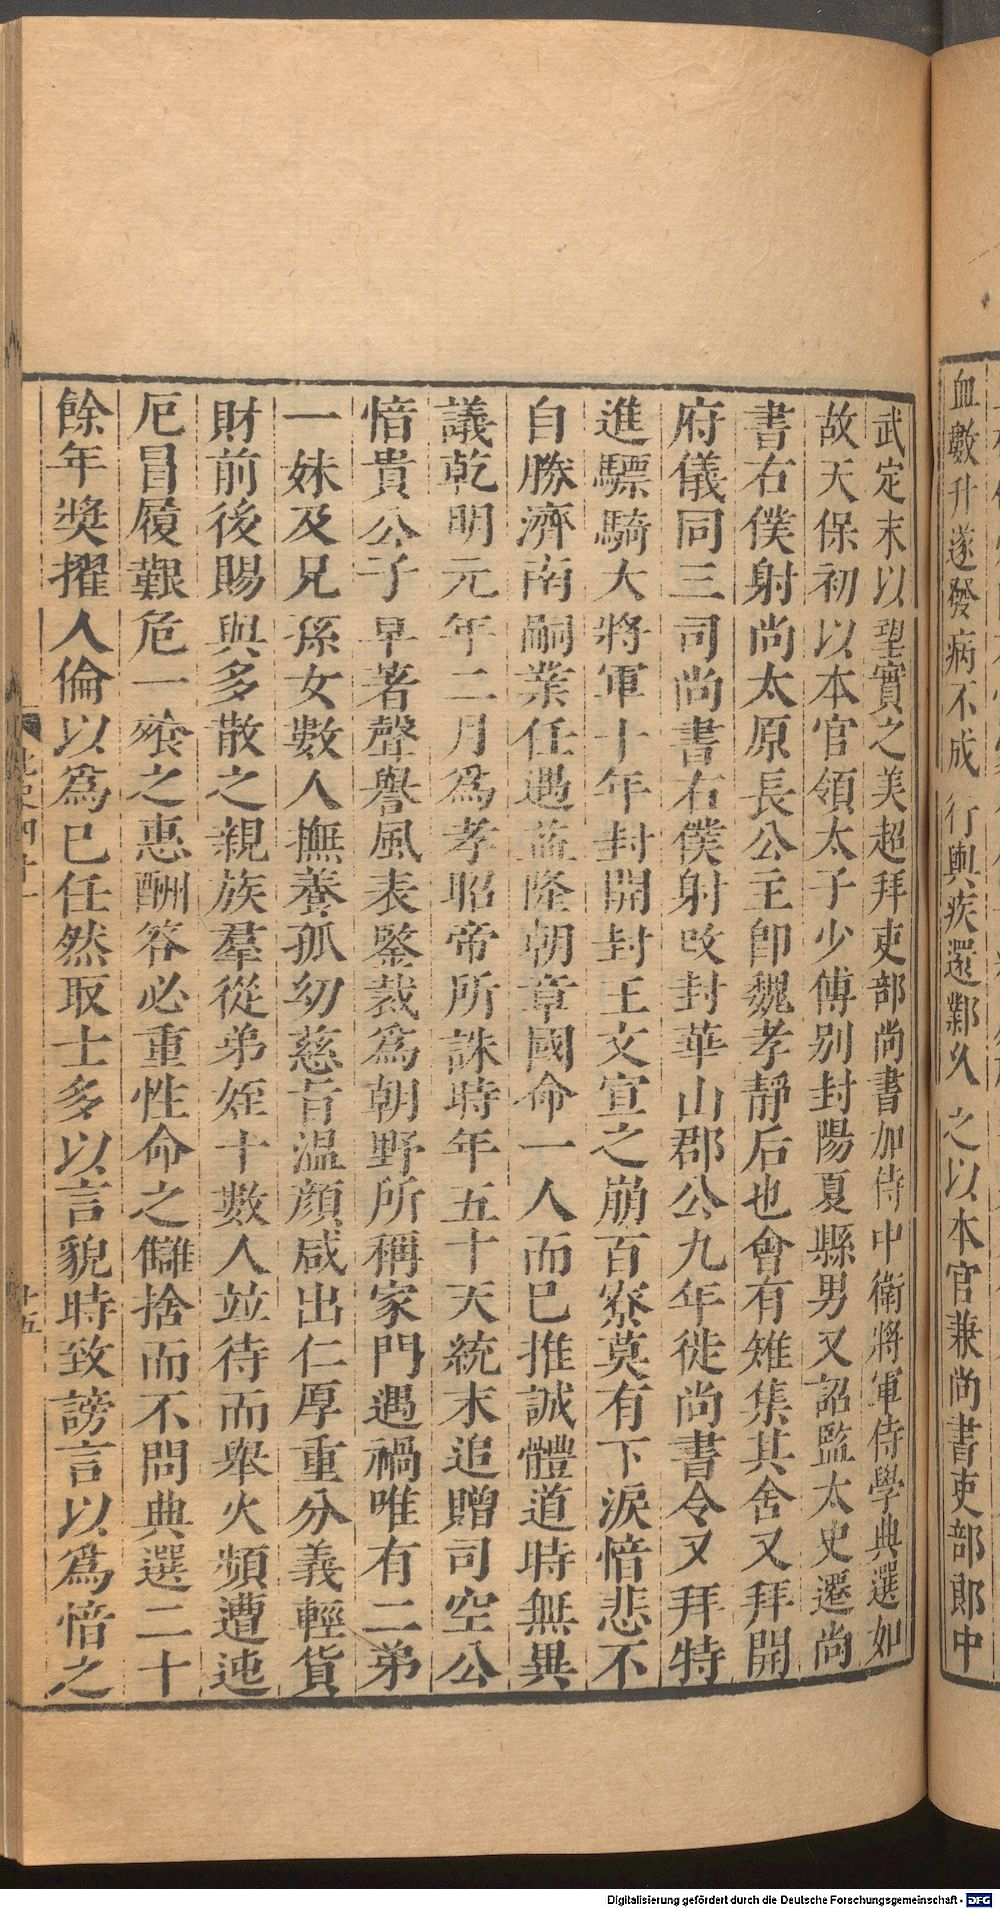 血數升遂發病不成行輿疾還鄴久之以本官兼尚書吏部郎中
武定末以望實之美超拜吏部尚書加侍中衛將軍侍學典選如
故天保初以本官領太子少傅别封陽夏縣男又詔監太史遷尚
書右僕射尚太原長公主卽魏孝靜后也會有雉集其舍又拜開
府儀同三司尚書右僕射改封華山郡公九年徙尚書令又拜特
進驃騎大將軍十年封開封王文宣之崩百寮莫有下淚愔悲不
自勝濟南嗣業任遇益隆朝章國命一人而已推誠體道時無異
議乾明元年二月爲孝昭帝所誅時年五十天統末追贈司空公
愔貴公子早著聲譽風表鑒裁爲朝野所稱家門遇禍唯有二弟
一妹及兄孫女數人撫養孤幼慈旨温顔咸出仁厚重分義輕貨
財前後賜與多散之親族羣從弟姪十數人竝待而舉火頻遭迍
厄冒履艱危一飡之惠酬答必重性命之讎捨而不問典選二十
餘年獎擢人倫以爲已任然取士多以言貌時致謗言以爲愔之
北史四十一
廿五
Digitalisierung gefördert durch die Deutsche Forschungsgemeinschaft - DFG